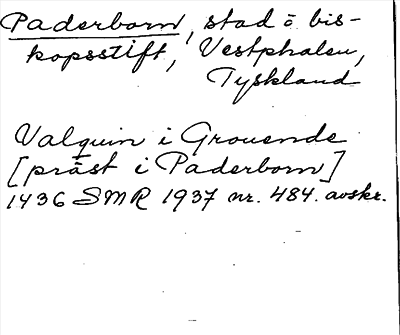 Paderborn, stad o bis-
kopsstift, Vestphalen,
Tyskland
Valquin i Grouende
[präst i Paderborn]
1436 SMR 1937 nr. 484. avskr.